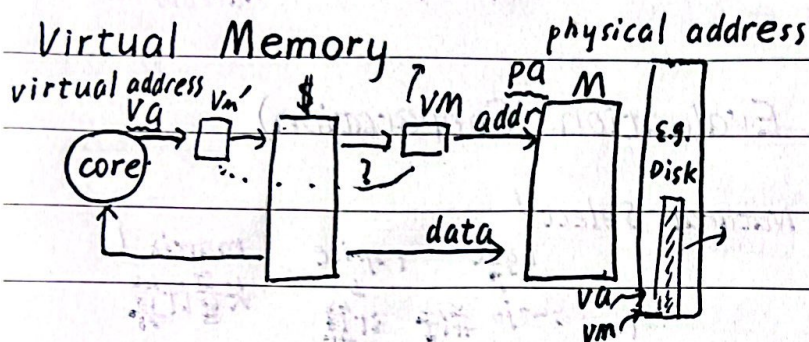 Virtual Memory
physical address
virtual address
va
Vm'
$
VM
pa
addr
M
core
?
E.g.
Disk
data
va
vm